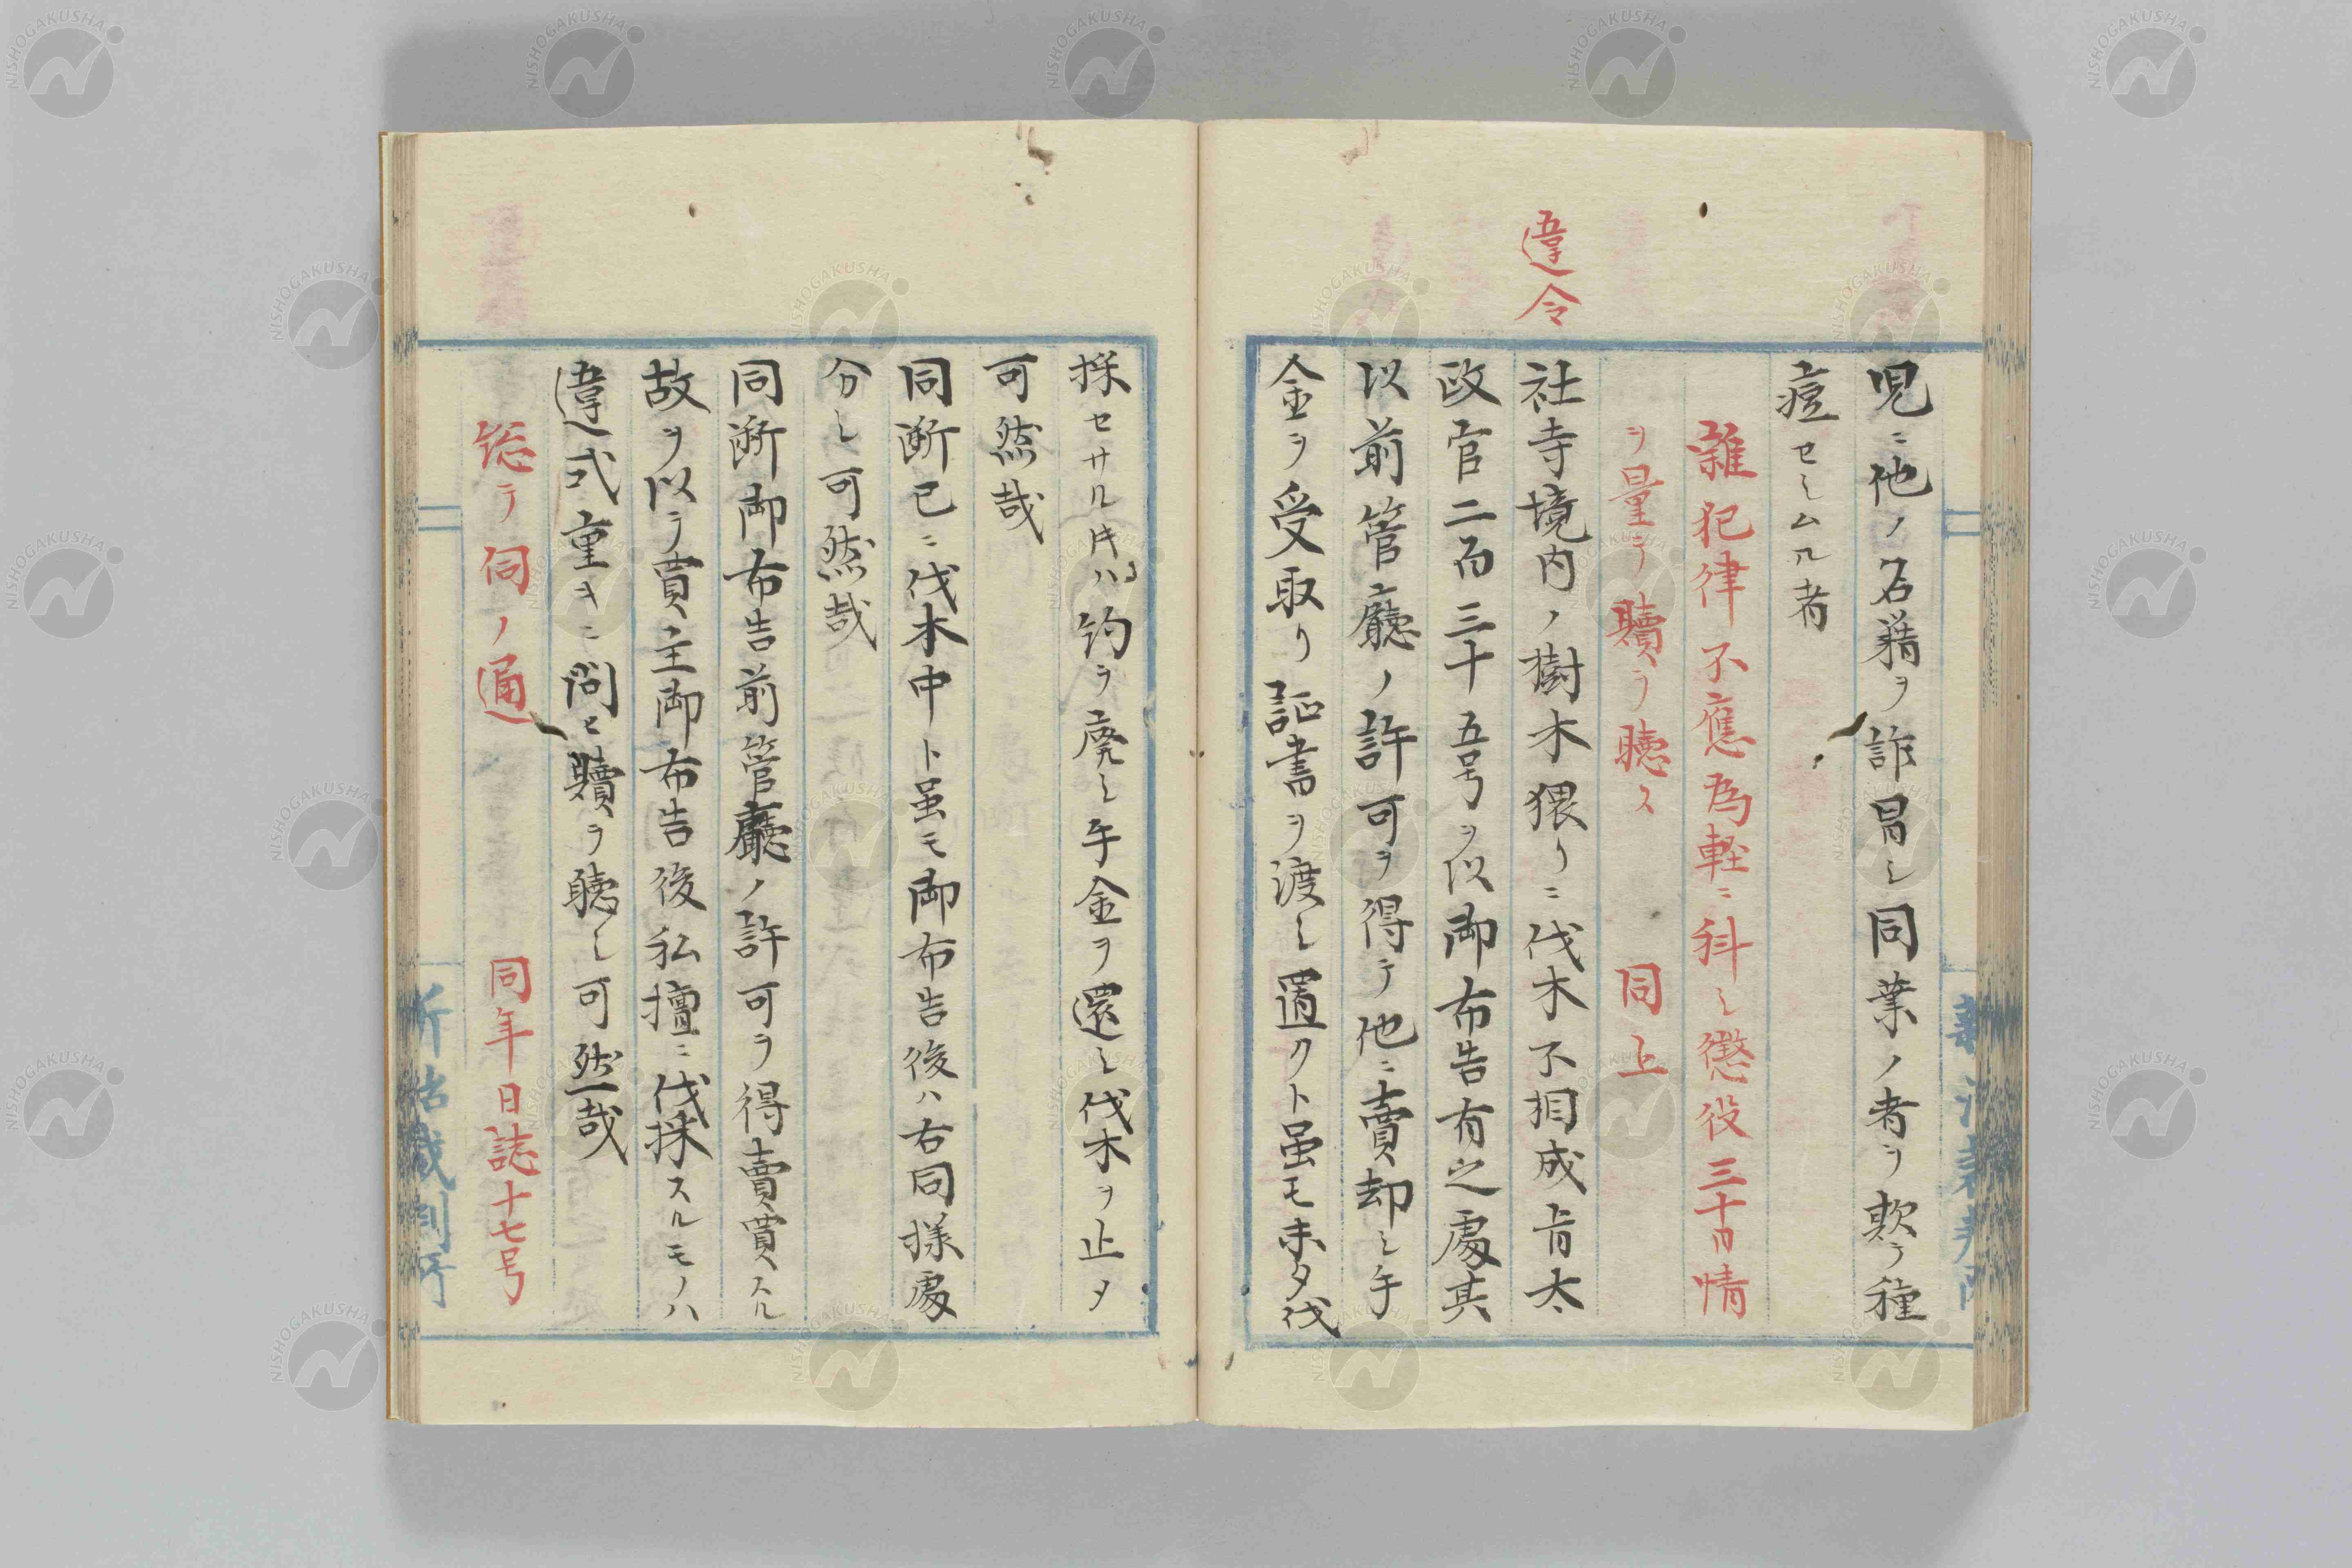 違令
児ニ他ノ名籍ヲ詐冒シ同業ノ者ヲ欺ヲ種
痘セシムル者
雑犯律不應為軽ニ科シ懲役三十日情
ヲ量ヲ贖ヲ聴ス 同上
社寺境内ノ樹木猥リニ伐木不相成旨太
政官二百三十五号ヲ以御布告有之處其
以前管廳ノ許可ヲ得テ他ニ賣却シ手
金ヲ受取リ証書ヲ渡シ置クト虽モ未タ伐
採セサル片ハ約ヲ廃シ手金ヲ還シ伐木ヲ止メ
可然哉
同断已ニ伐木中ト虽モ御布告後ハ右同様處
分シ可然哉
同断御布告前管廳ノ許可ヲ得賣買スル
故ヲ以テ買主御布告後私擅ニ伐採スルモノハ
違式重キニ問ヒ贖ヲ聴シ可然哉
総テ伺ノ通 同年日誌十七号
新治裁判所
NISHOGAKUSHA